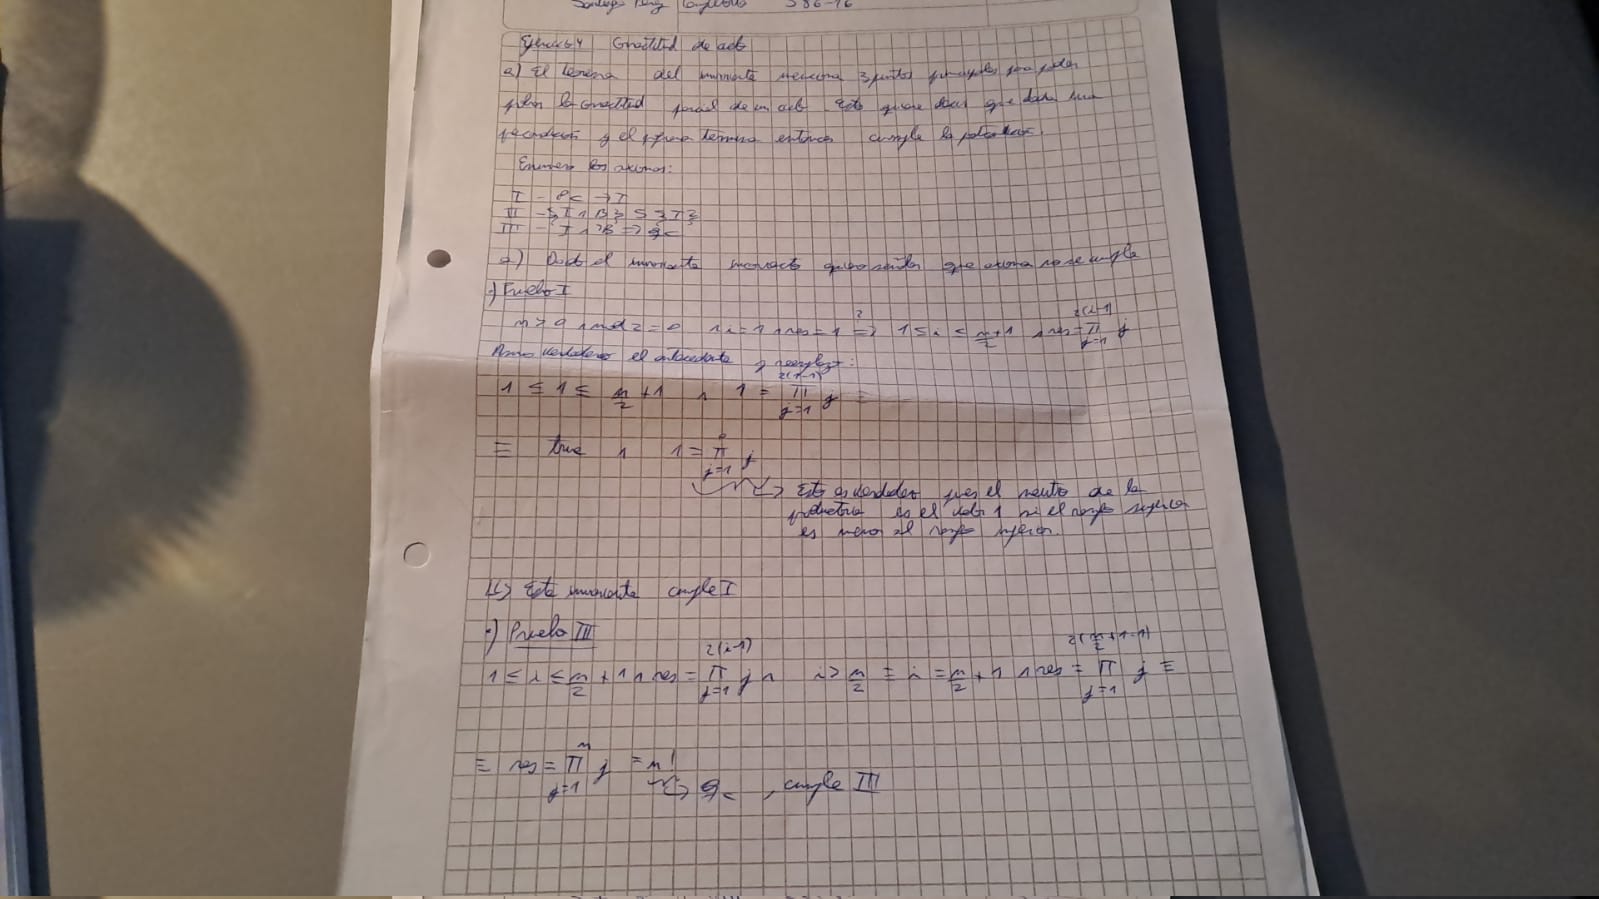 Santiago Perez 586-16
Ejercicio 4 Correctitud de ciclo
a) El teorema del invariante menciona 3 puntos principales para poder
probar la correctitud parcial de un ciclo. Esto quiere decir que dada una
precondición y el programa termina entonces cumple la postcondición.
Enumero los axiomas:
I - Pc → I
II - {I ∧ B} S {I}
III - I ∧ ¬B ⇒ Qc
a) Dado el invariante incorrecto quiero señalar que axioma no se cumple
·) Pruebo I
n ≥ 0 ∧ n mod 2 = 0 ∧ i = 1 ∧ res = 1 ⇒? 1 ≤ i ≤ n/2 + 1 ∧ res = ∏_{j=1}^{2(i-1)} j
Asumo verdadero el antecedente y reemplazo:
1 ≤ 1 ≤ n/2 + 1 ∧ 1 = ∏_{j=1}^{2(1-1)} j ≡
≡ true ∧ 1 = ∏_{j=1}^{0} j
→ Esto es verdadero pues el neutro de la
productoria es el valor 1 si el rango superior
es menor al rango inferior.
↳ Este invariante cumple I
·) Pruebo III
1 ≤ i ≤ n/2 + 1 ∧ res = ∏_{j=1}^{2(i-1)} j ∧ i > n/2 ≡ i = n/2 + 1 ∧ res = ∏_{j=1}^{2(n/2+1-1)} j ≡
≡ res = ∏_{j=1}^{n} j = n!
→ Qc, cumple III